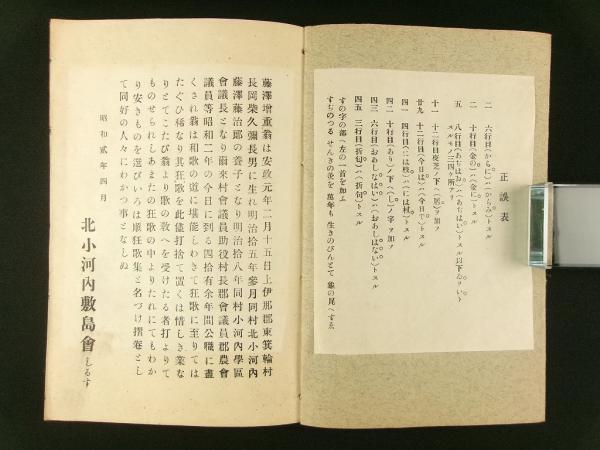 正誤表
二 六行目(からに)ハ(からみ)トスル
二 十行目(金の)ハ(金に)トスル
五 八行目(あぢはお)ハ(あぢはい)トスル以下
スルモノ三四ケ所アリ
十一 十二行目ノ下ヘ(居)ヲ加フ
廿九 十二行目(今日は)ハ(今日ぞ)トスル
四一 四行目(には枝)ハ(にに村)トスル
四二 十行目(あり)ノ下ヘ(し)ノ字ヲ加フ
四三 六行目(おあしなはい)ハ(おあしはない)トスル
四五 三行目(折句)ハ(折句)トスル
すの字の部ヘ左の一首を加ふ
すぢのつる せんきの後を 萬年も 生きのびんとて 龜の尾へすゑ
藤澤增重翁は安政元年二月十五日上伊那郡東箕輪村
長岡柴久彌長男に生れ明治拾五年參月同村北小河內
藤澤藤治郎の養子となり明治拾八年同村小河內學區
會議長となり爾來村會議員助役村長郡會議員郡農會
議員等昭和二年の今日に到る四拾有余年間公職に盡
くされ翁は和歌の道に堪能しわきて狂歌に至りては
たぐひ稀なり其狂歌を此儘打捨て置くは惜しき業な
りとてこたび翁より歌の敎へを受けたる者打よりて
ものせられしあまたの狂歌の中よりたれにてもわか
り安きものを選びいろは順狂歌集と名づけ摺卷とし
て同好の人々にわかつ事となしぬ
昭和貳年四月
北小河內敷島會しるす